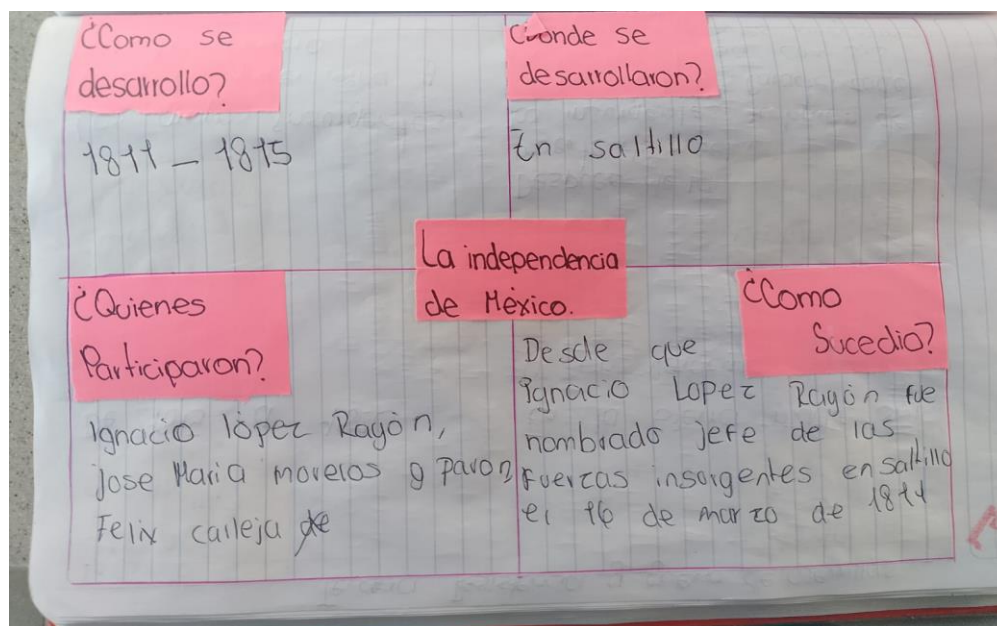 ¿Como se
desarrollo?
1811 - 1815
¿Donde se
desarrollaron?
En saltillo
La independencia
de México.
¿Quienes
Participaron?
Ignacio lópez Rayón,
Jose Maria morelos y pavon
Felix calleja
¿Como
Sucedio?
Desde que
Ignacio Lopez Rayón fue
nombrado jefe de las
Fuerzas insurgentes en saltillo
el 16 de marzo de 1811